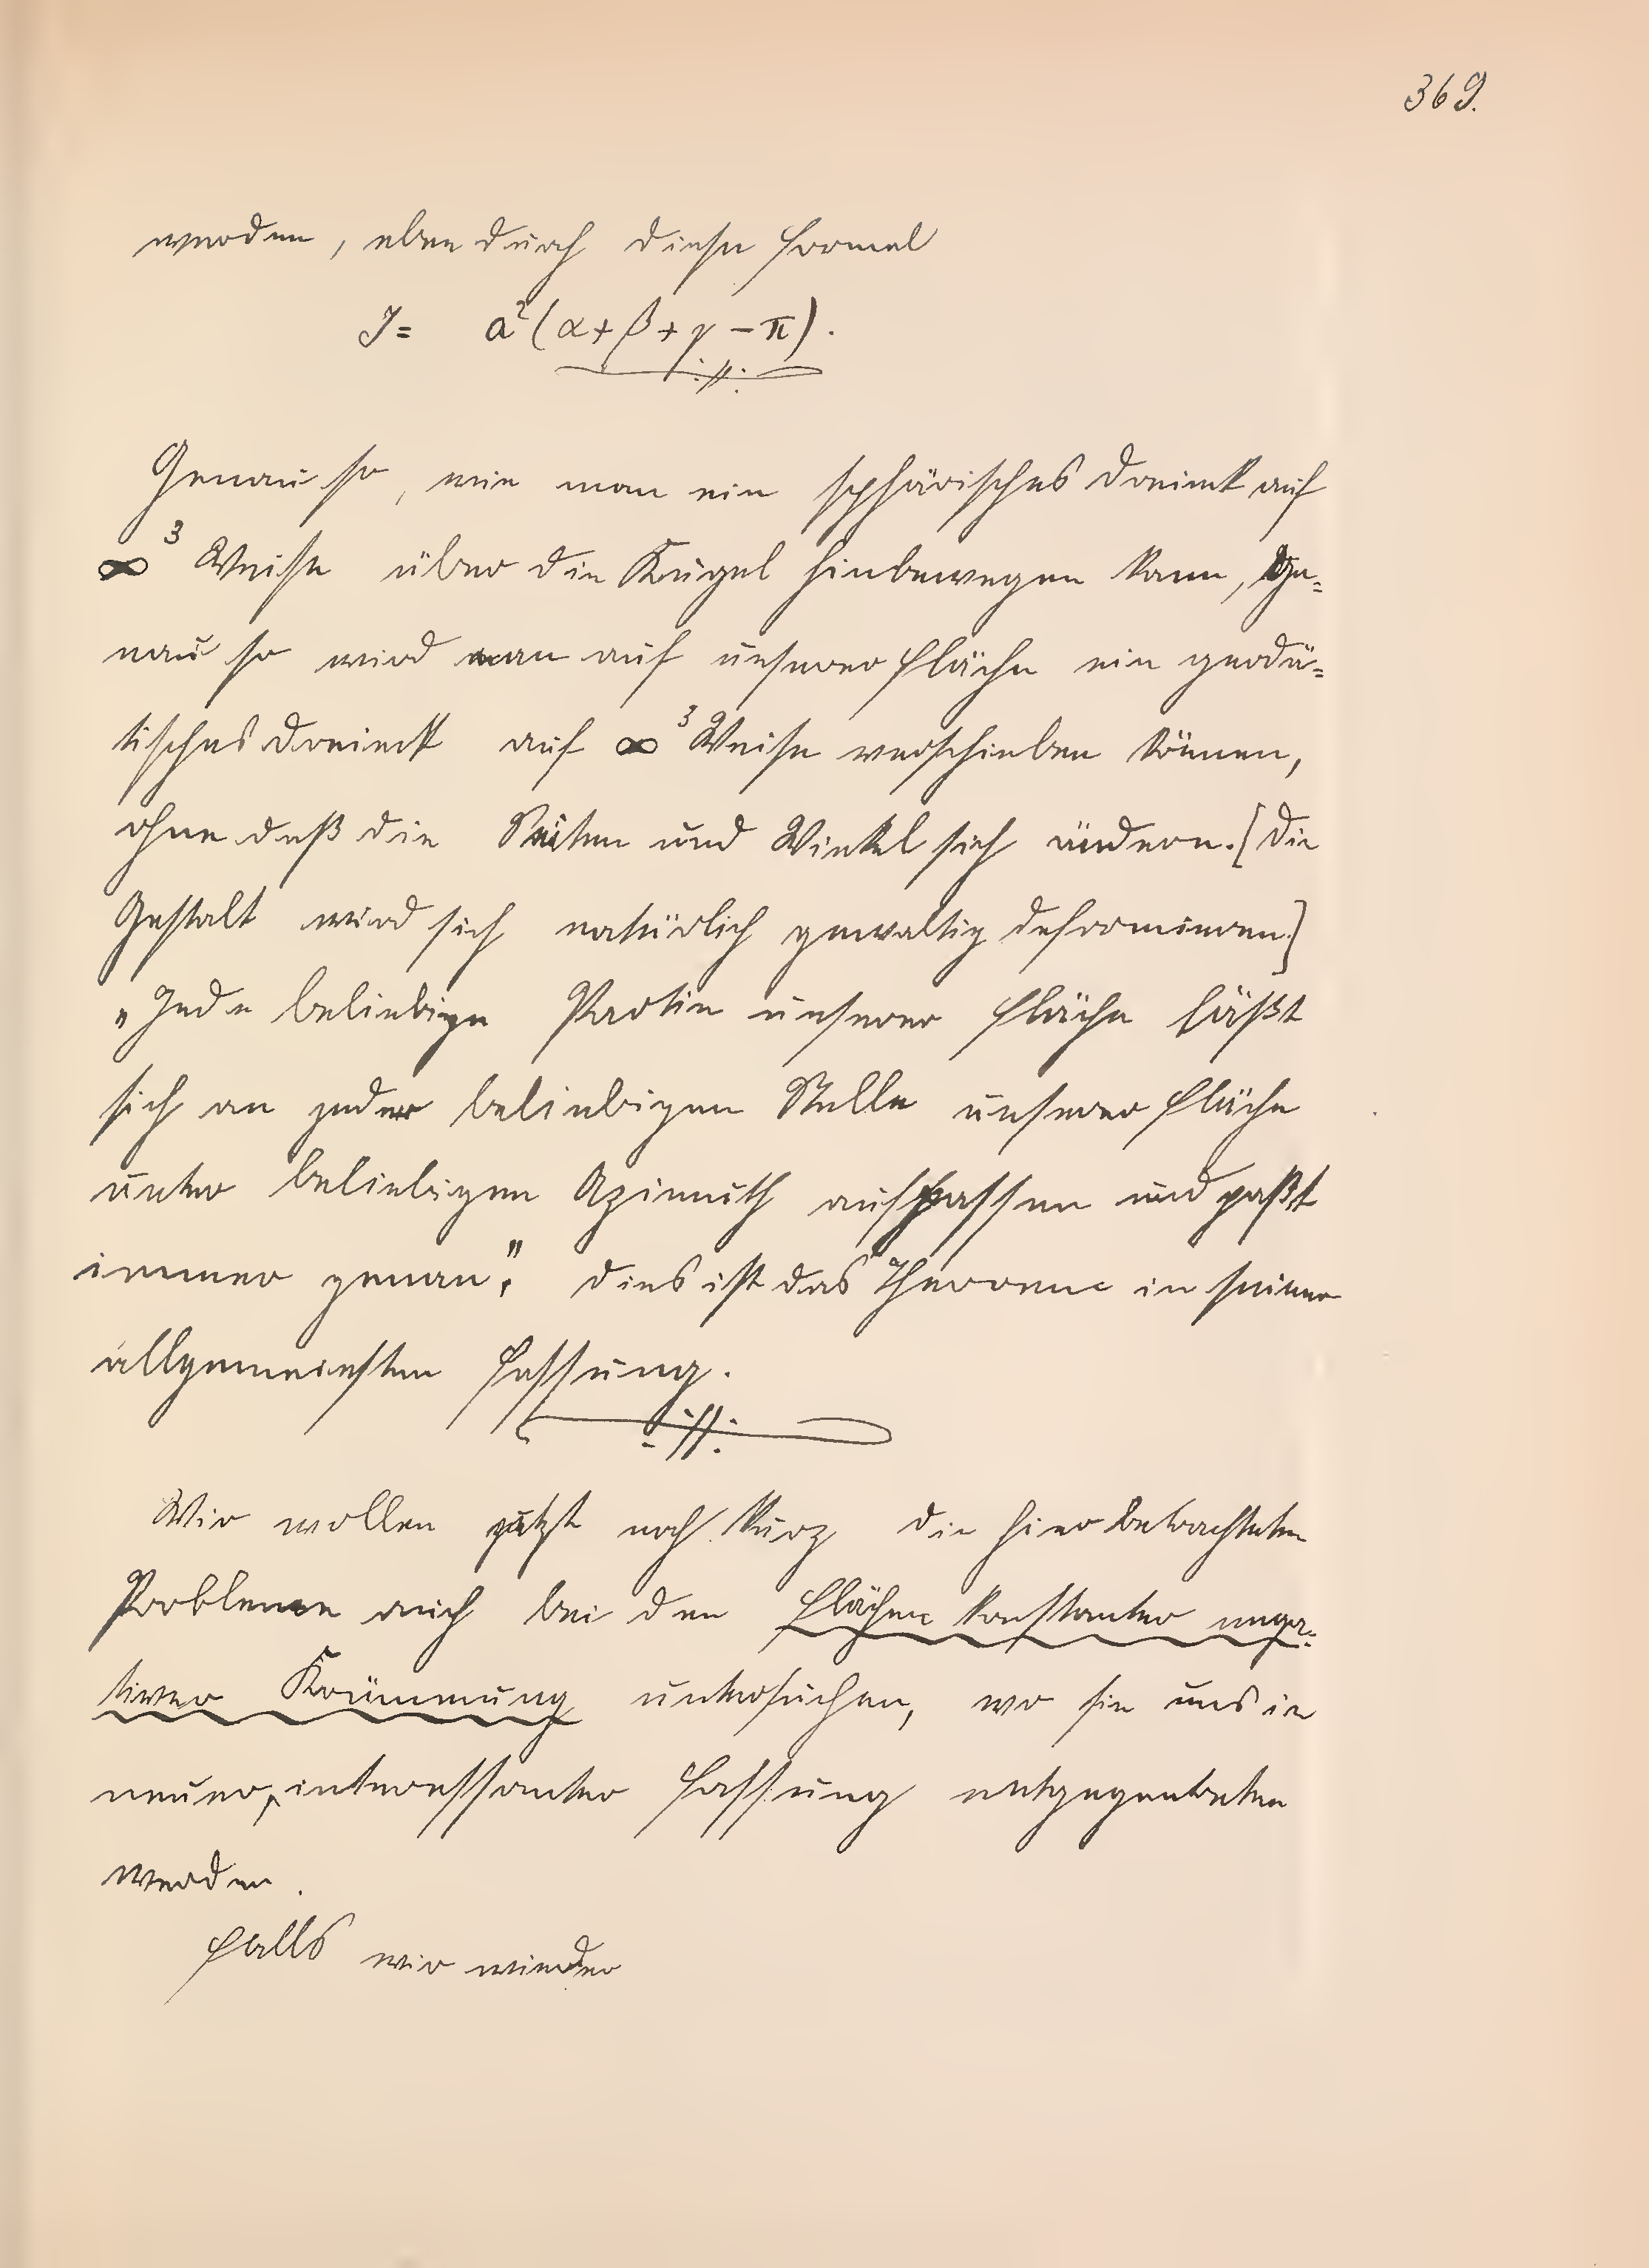 369.
werden, eben durch diese Formel
J = a²(α+β+γ−π).
Genau so, wie man ein sphärisches Dreieck auf
∞³ Weise über die Kugel hinbewegen kann, ge=
nau so wird man auf unserer Fläche ein geodä=
tisches Dreieck auf ∞³ Weise verschieben können,
ohne daß die Seiten und Winkel sich ändern. [Die
Gestalt wird sich natürlich gewaltig deformieren.]
„Jede beliebige Partie unserer Fläche läßt
sich an jeder beliebigen Stelle unserer Fläche
unter beliebigem Azimuth aufpassen und paßt
immer genau." Dies ist das Theorem in seiner
allgemeinsten Fassung.
Wir wollen jetzt noch kurz die hier betrachteten
Probleme auch bei den Flächen konstanter nega=
tiver Krümmung untersuchen, wo sie uns in
neuer, interessanter Fassung entgegentreten
werden.
Falls wir wieder